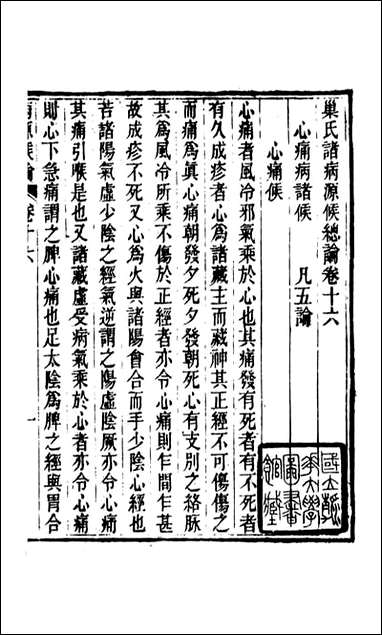 巢氏諸病源候總論卷十六
心痛病諸候　凡五論
心痛候
心痛者風冷邪氣乘於心也其痛發有死者有不死者
有久成疹者心爲諸藏主而藏神其正經不可傷傷之
而痛爲眞心痛朝發夕死夕發朝死心有支別之絡脉
其爲風冷所乘不傷於正經者亦令心痛則乍間乍甚
故成疹不死又心爲火與諸陽會合而手少陰心經也
若諸陽氣虛少陰之經氣逆謂之陽虛陰厥亦令心痛
其痛引喉是也又諸藏虛受病氣乘於心者亦令心痛
則心下急痛謂之脾心痛也足太陰爲脾之經與胃合
病源候論　卷十六　一
國立
大學
圖書
館